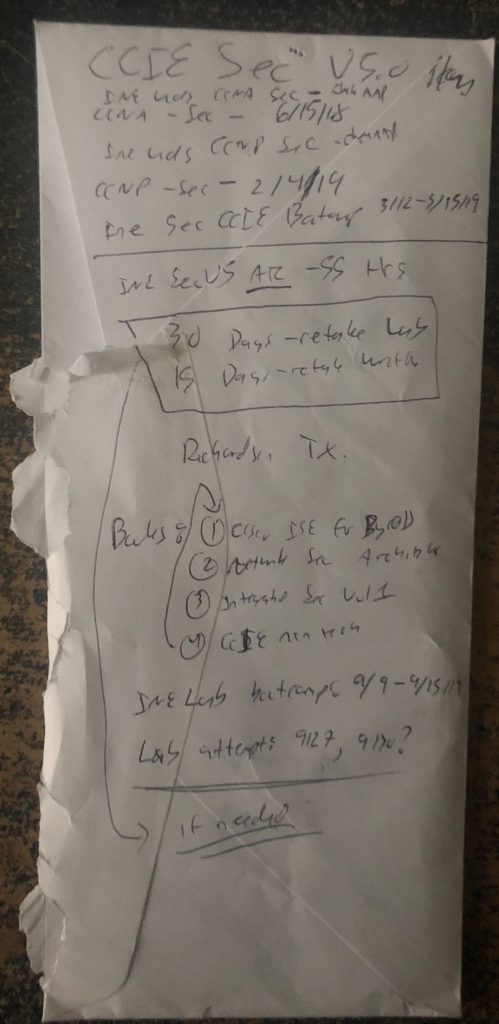 CCIE Sec V5.0
INE vids CCNA Sec - channel
CCNA - Sec - 6/15/18
INE vids CCNP Sec - channel
CCNP - Sec - 2/4/19
INE Sec CCIE 3/12-5/15/19
INE Sec V5 ATC - 55 Hrs
30 Days - retake Lab
15 Days - retake
Richardson, TX.
Books: ① Cisco ISE for ByOD
② Network Sec
③ Integrated Sec Vol 1
④ CCIE
INE Lab 9/9-
Lab attempt: 9/27, 9/30?
if needed